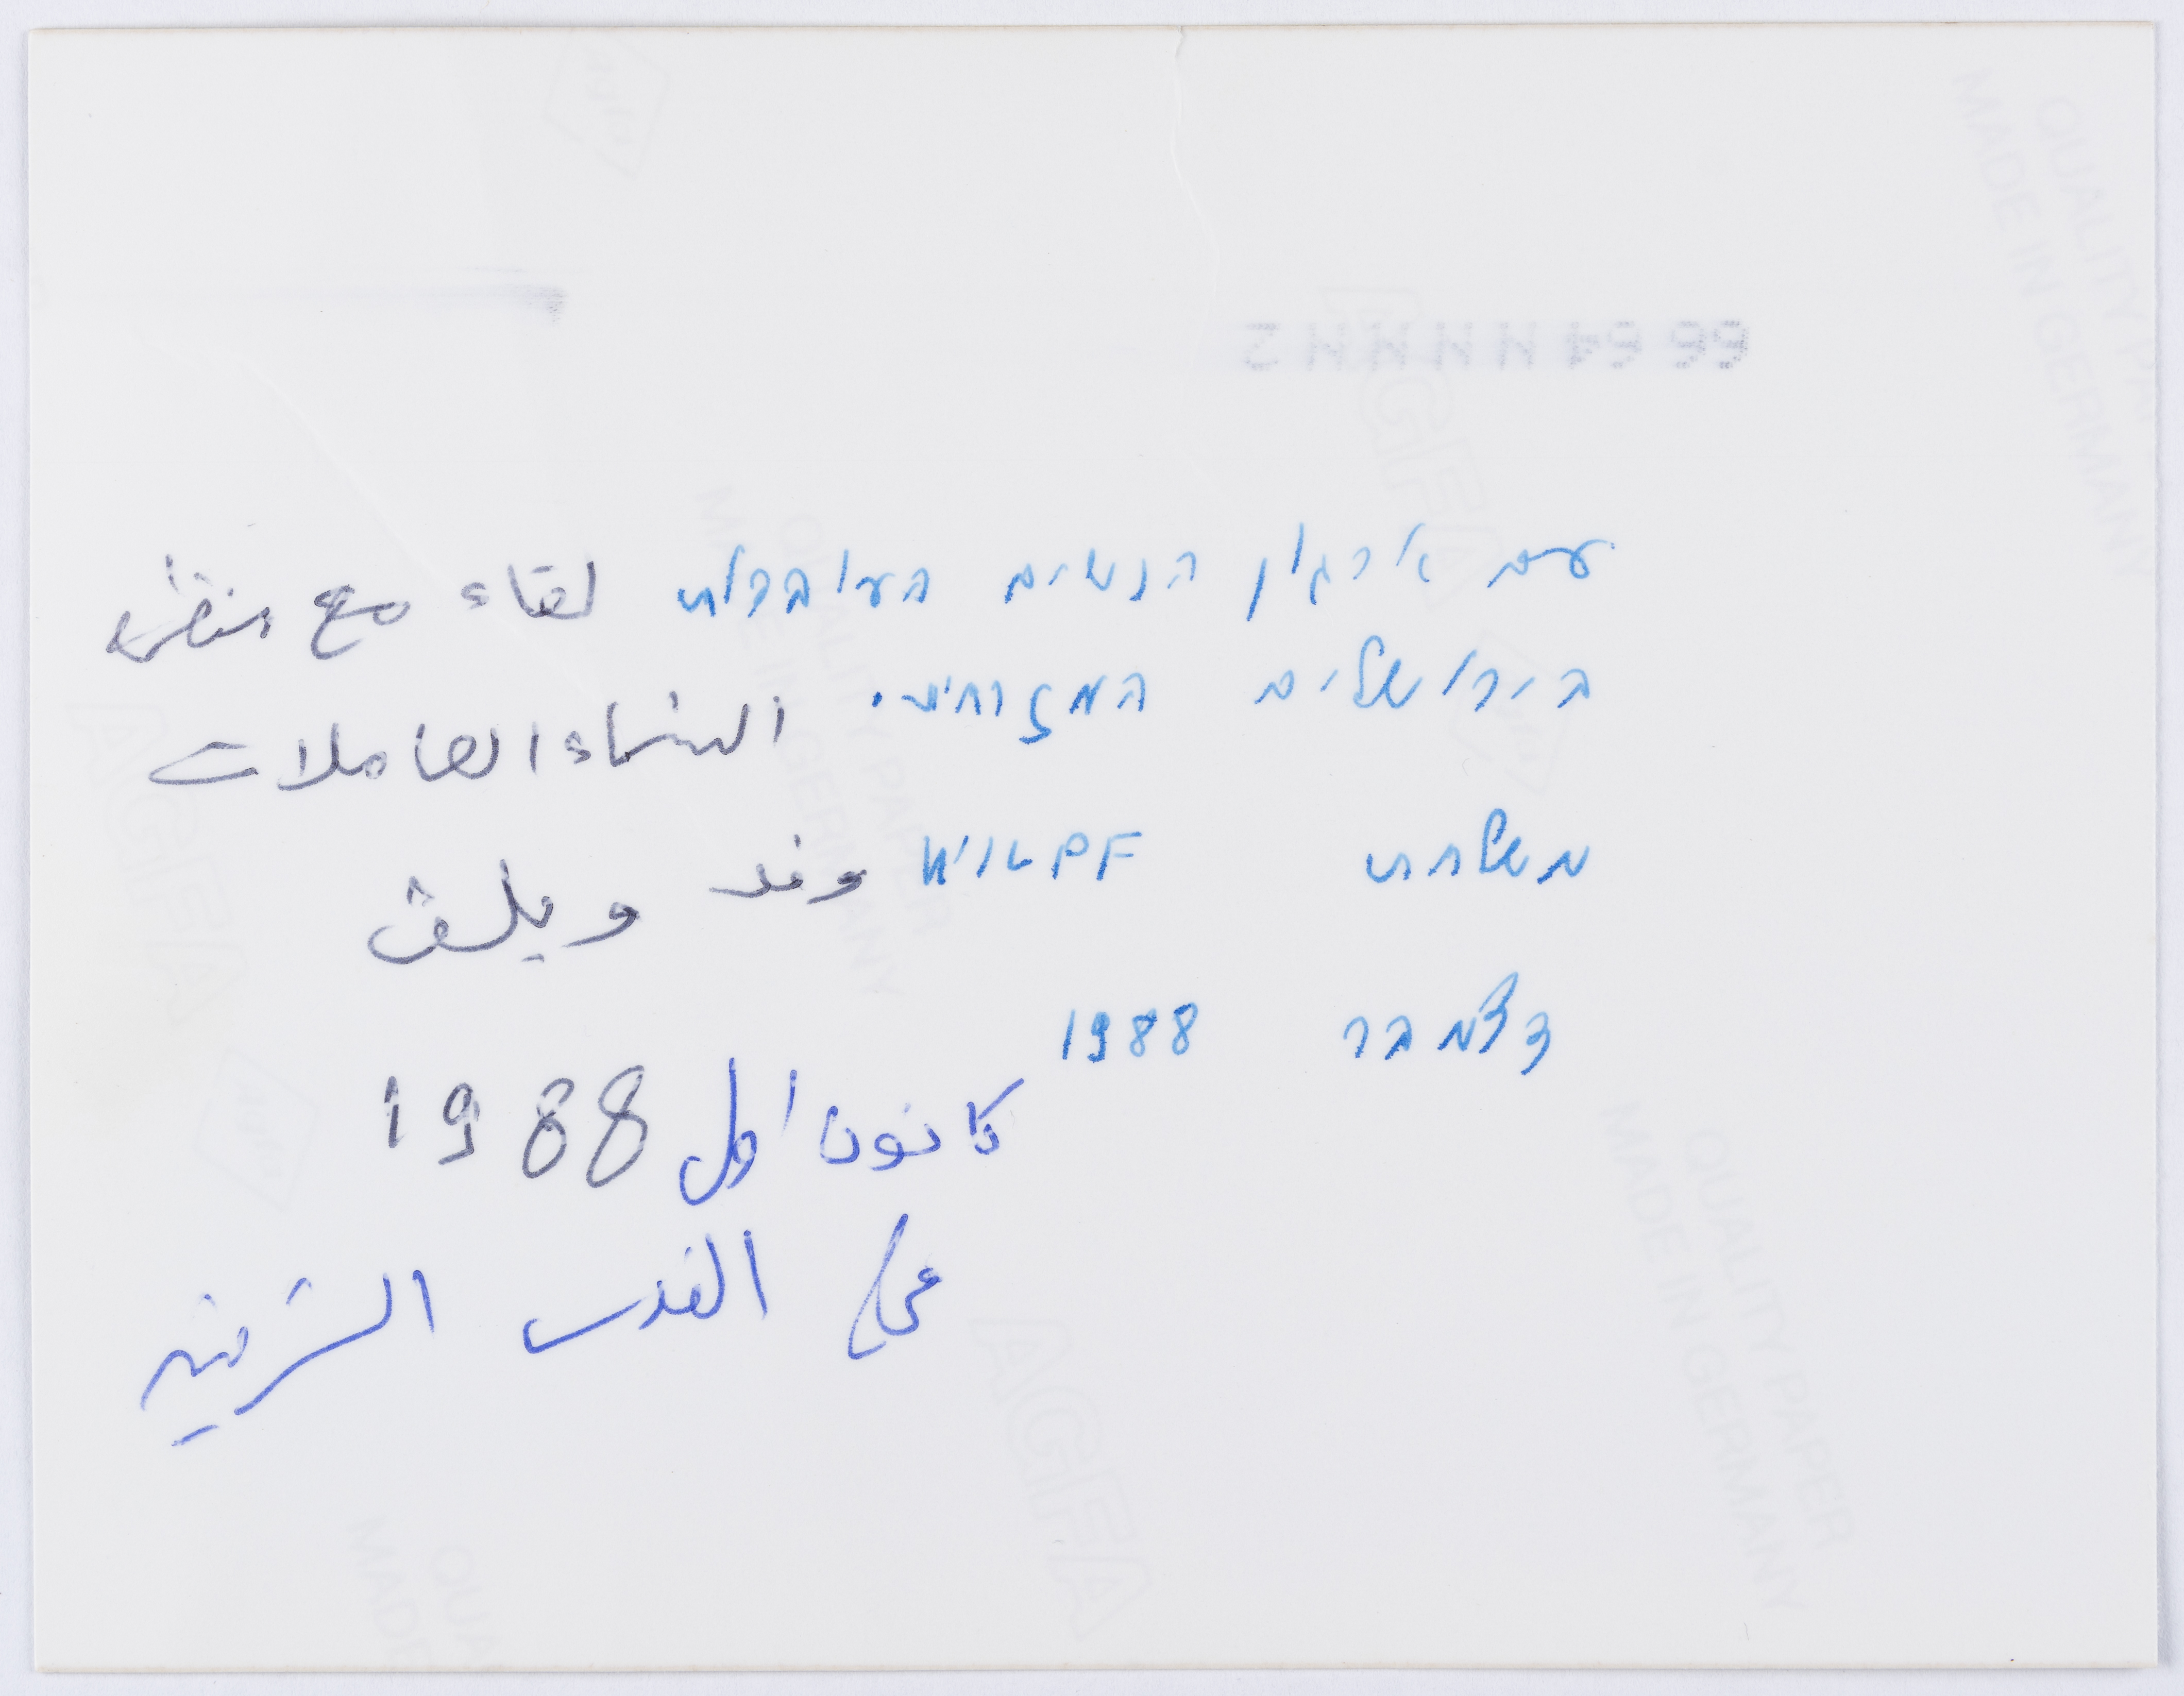 עם ארגון הנשים העובדות
בירושלים המזרחית.
משלחת WILPF
דצמבר 1988
لقاء مع منظمة
النساء العاملات
وفد ويلف
كانون اول 1988
القدس الشرقية
AGFA
QUALITY PAPER
MADE IN GERMANY